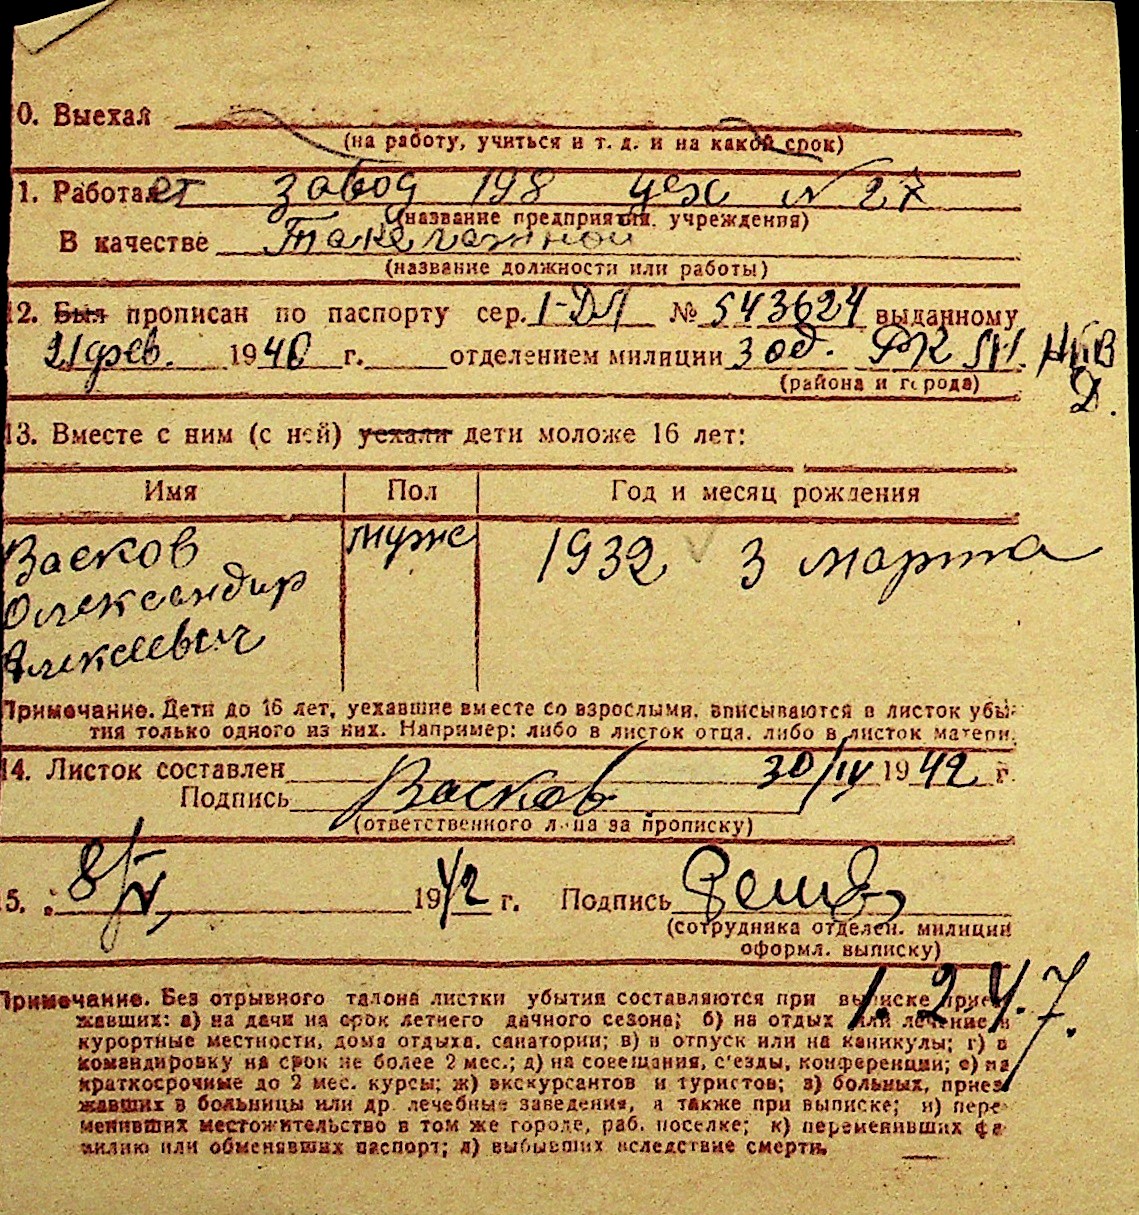 0. Выехал
(на работу, учиться и т. д. и на какой срок)
1. Работает завод 198 цех № 27
(название предприятия, учреждения)
В качестве Такелажной
(название должности или работы)
12. Был прописан по паспорту сер. I-ДЛ № 543624 выданному
21 фев. 1940 г. отделением милиции 3 од. РК НКВД.
(района и города)
13. Вместе с ним (с ней) уехали дети моложе 16 лет:
Имя Пол Год и месяц рождения
Васков муж 1932 3 марта
Александр
Алексеевич
Примечание. Дети до 16 лет, уехавшие вместе со взрослыми, вписываются в листок убы-
тия только одного из них. Например: либо в листок отца, либо в листок матери.
14. Листок составлен 30/IV 1942 г.
Подпись Васков
(ответственного лица за прописку)
5. 8/V, 1942 г. Подпись
(сотрудника отделен. милиции
оформл. выписку)
1.2.4.7.
Примечание. Без отрывного талона листки убытия составляются при выписке приез-
жавших: а) на дачи на срок летнего дачного сезона; б) на отдых или лечение в
курортные местности, дома отдыха, санатории; в) в отпуск или на каникулы; г) в
командировку на срок не более 2 мес.; д) на совещания, с'езды, конференции; е) на
краткосрочные до 2 мес. курсы; ж) экскурсантов и туристов; з) больных, приез-
жавших в больницы или др. лечебные заведения, а также при выписке; и) пере-
менивших местожительство в том же городе, раб. поселке; к) переменивших фа-
милию или обменявших паспорт; л) выбывших вследствие смерти.